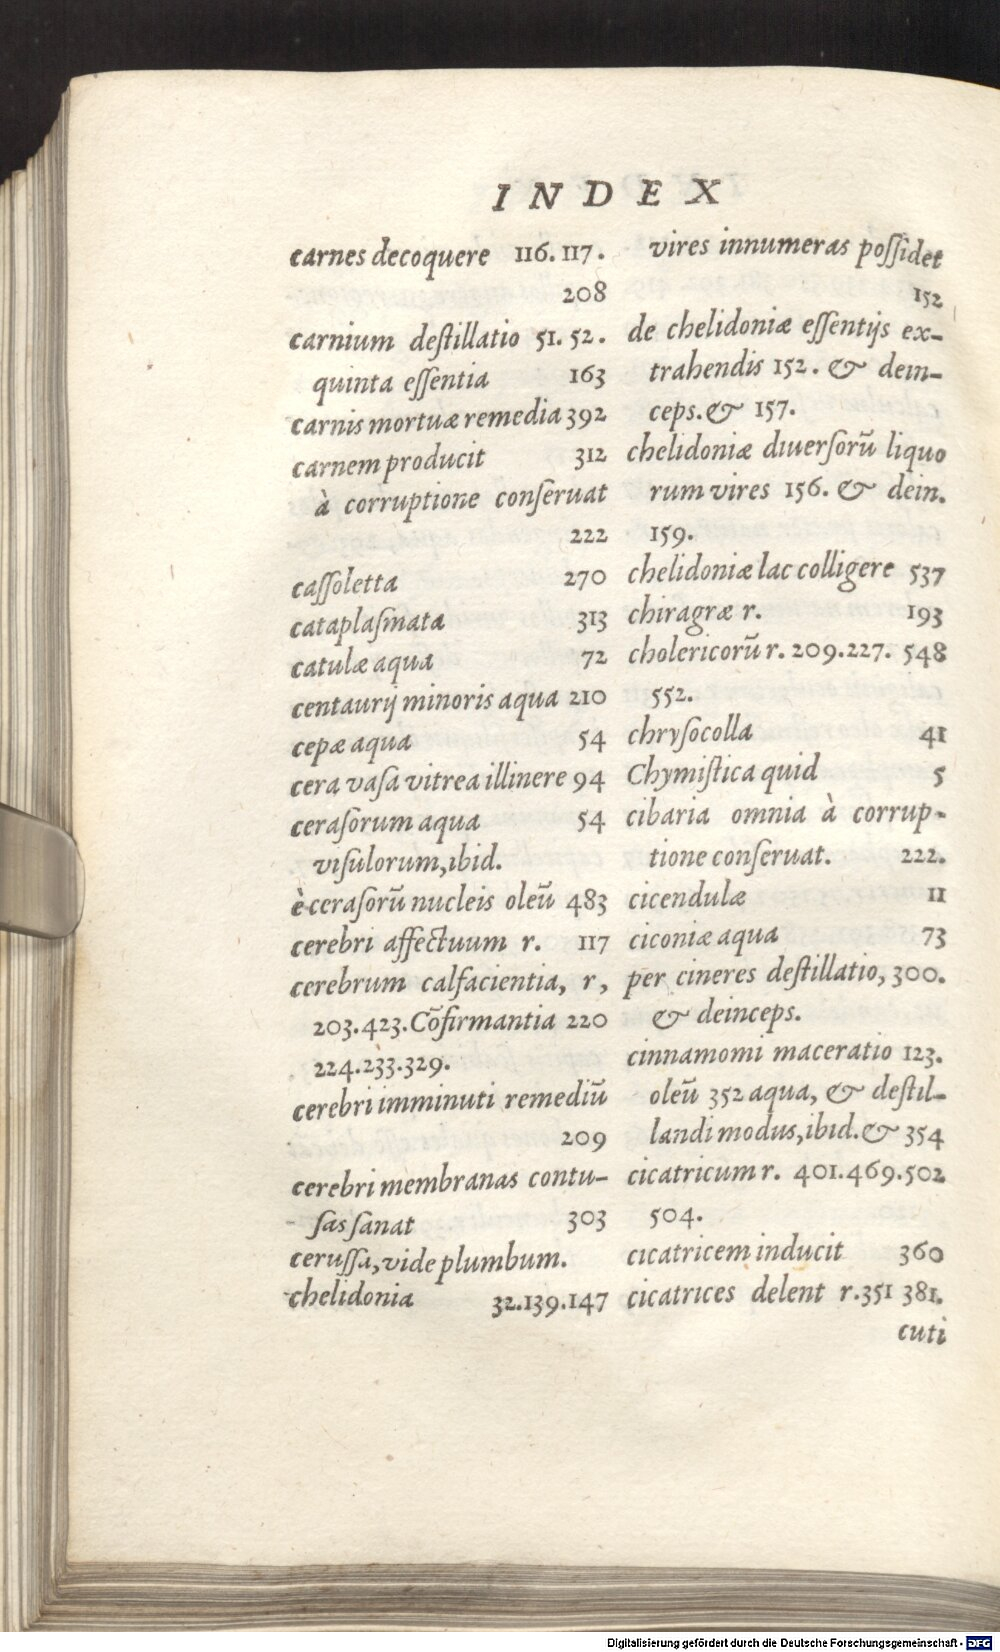 INDEX
carnes decoquere 116. 117.
208
carnium deſtillatio 51. 52.
quinta eſſentia 163
carnis mortuæ remedia 392
carnem producit 312
à corruptione conſeruat
222
caſſoletta 270
cataplaſmata 313
catulæ aqua 72
centaurij minoris aqua 210
cepæ aqua 54
cera vaſa vitrea illinere 94
ceraſorum aqua 54
viſulorum, ibid.
è ceraſorū nucleis oleū 483
cerebri affectuum r. 117
cerebrum calfacientia, r,
203.423. Cōfirmantia 220
224.233.329.
cerebri imminuti remediū
209
cerebri membranas contu-
ſas ſanat 303
ceruſſa, vide plumbum.
chelidonia 32.139.147
vires innumeras poſſidet
152
de chelidoniæ eſſentijs ex-
trahendis 152. & dein-
ceps. & 157.
chelidoniæ diuerſorū liquo
rum vires 156. & dein.
159.
chelidoniæ lac colligere 537
chiragræ r. 193
cholericorū r. 209.227. 548
552.
chryſocolla 41
Chymiſtica quid 5
cibaria omnia à corrup-
tione conſeruat. 222.
cicendulæ 11
ciconiæ aqua 73
per cineres deſtillatio, 300.
& deinceps.
cinnamomi maceratio 123.
oleū 352 aqua, & deſtil-
landi modus, ibid. & 354
cicatricum r. 401.469.502
504.
cicatricem inducit 360
cicatrices delent r. 351 381.
cuti
Digitalisierung gefördert durch die Deutsche Forschungsgemeinschaft - DFG